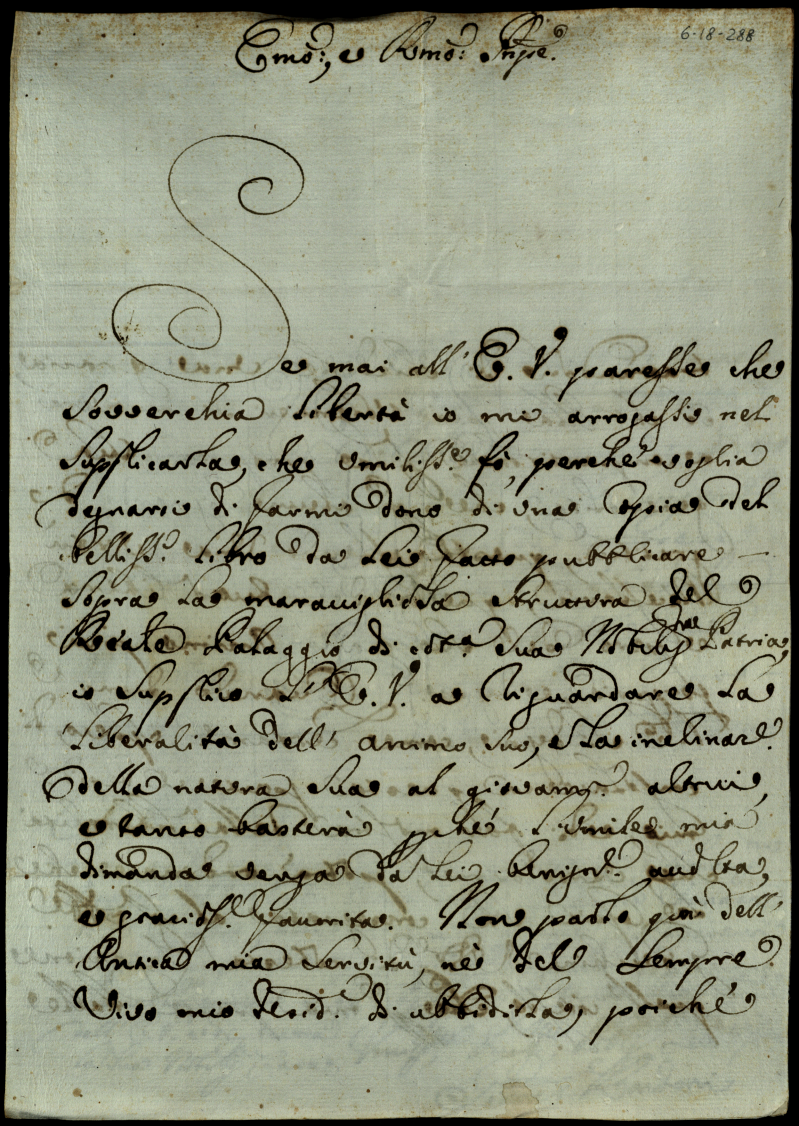 6-18-288
Emo:, e Rmo: Sig.re
Se mai all' E. V. paresse che
soverchia libertà io mi arrogassi nel
supplicarla, che umiliss.e fò, perché voglia
degnarsi di farmi dono di una Copia del
belliss.o libro da Lei fatto pubblicare —
sopra la maravigliosa struttura del
Reale Palaggio di cotà sua Nobiliss Patria,
io supplico l' E. V. a riguardare la
liberalità dell' animo suo, e la inclinaz.e
della natura sua al giovam.to altrui,
e tanto basterà pché l'umile mia
dimanda venga da Lei benign.te audita,
e grazios.te favorita. Non parlo già dell'
Antica mia servitù, nè del sempre
Vivo mio desid.o di ubbidirla, poiché